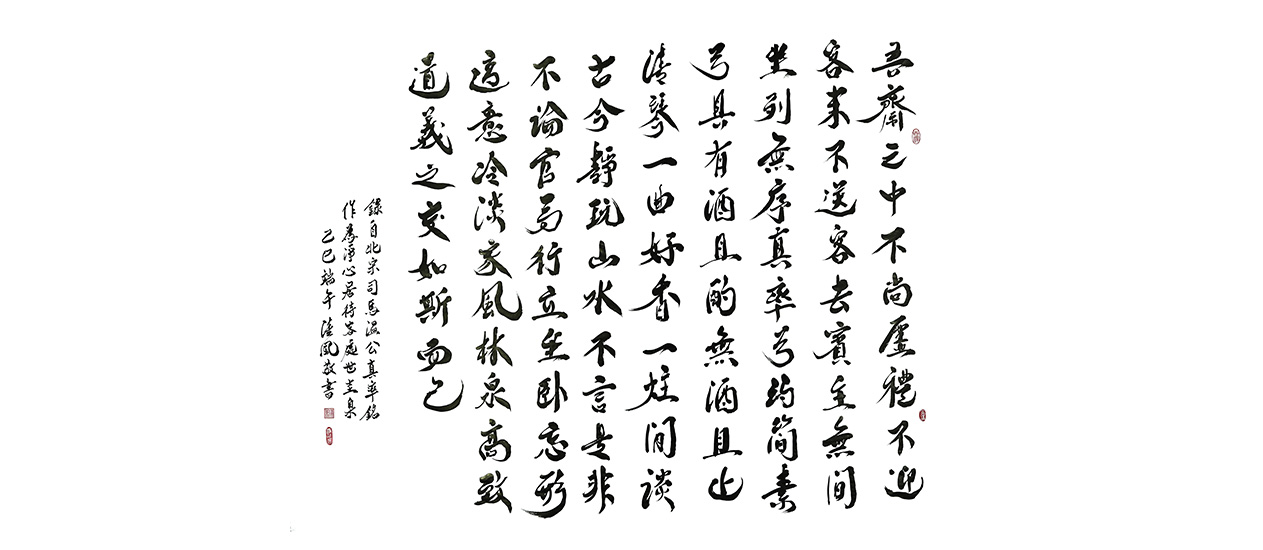 吾齋之中不尚虛禮不迎
客来不送客去賓主無間
坐列無序真率為約簡素
為具有酒且酌無酒且止
清琴一曲好香一炷閒談
古今靜玩山水不言是非
不論官局行立坐卧忘形
適意冷淡家風林泉高致
道義之交如斯而已
錄自北宋司馬溫公真率銘
作為淨心居待客處世圭臬
己巳端午 風敬書